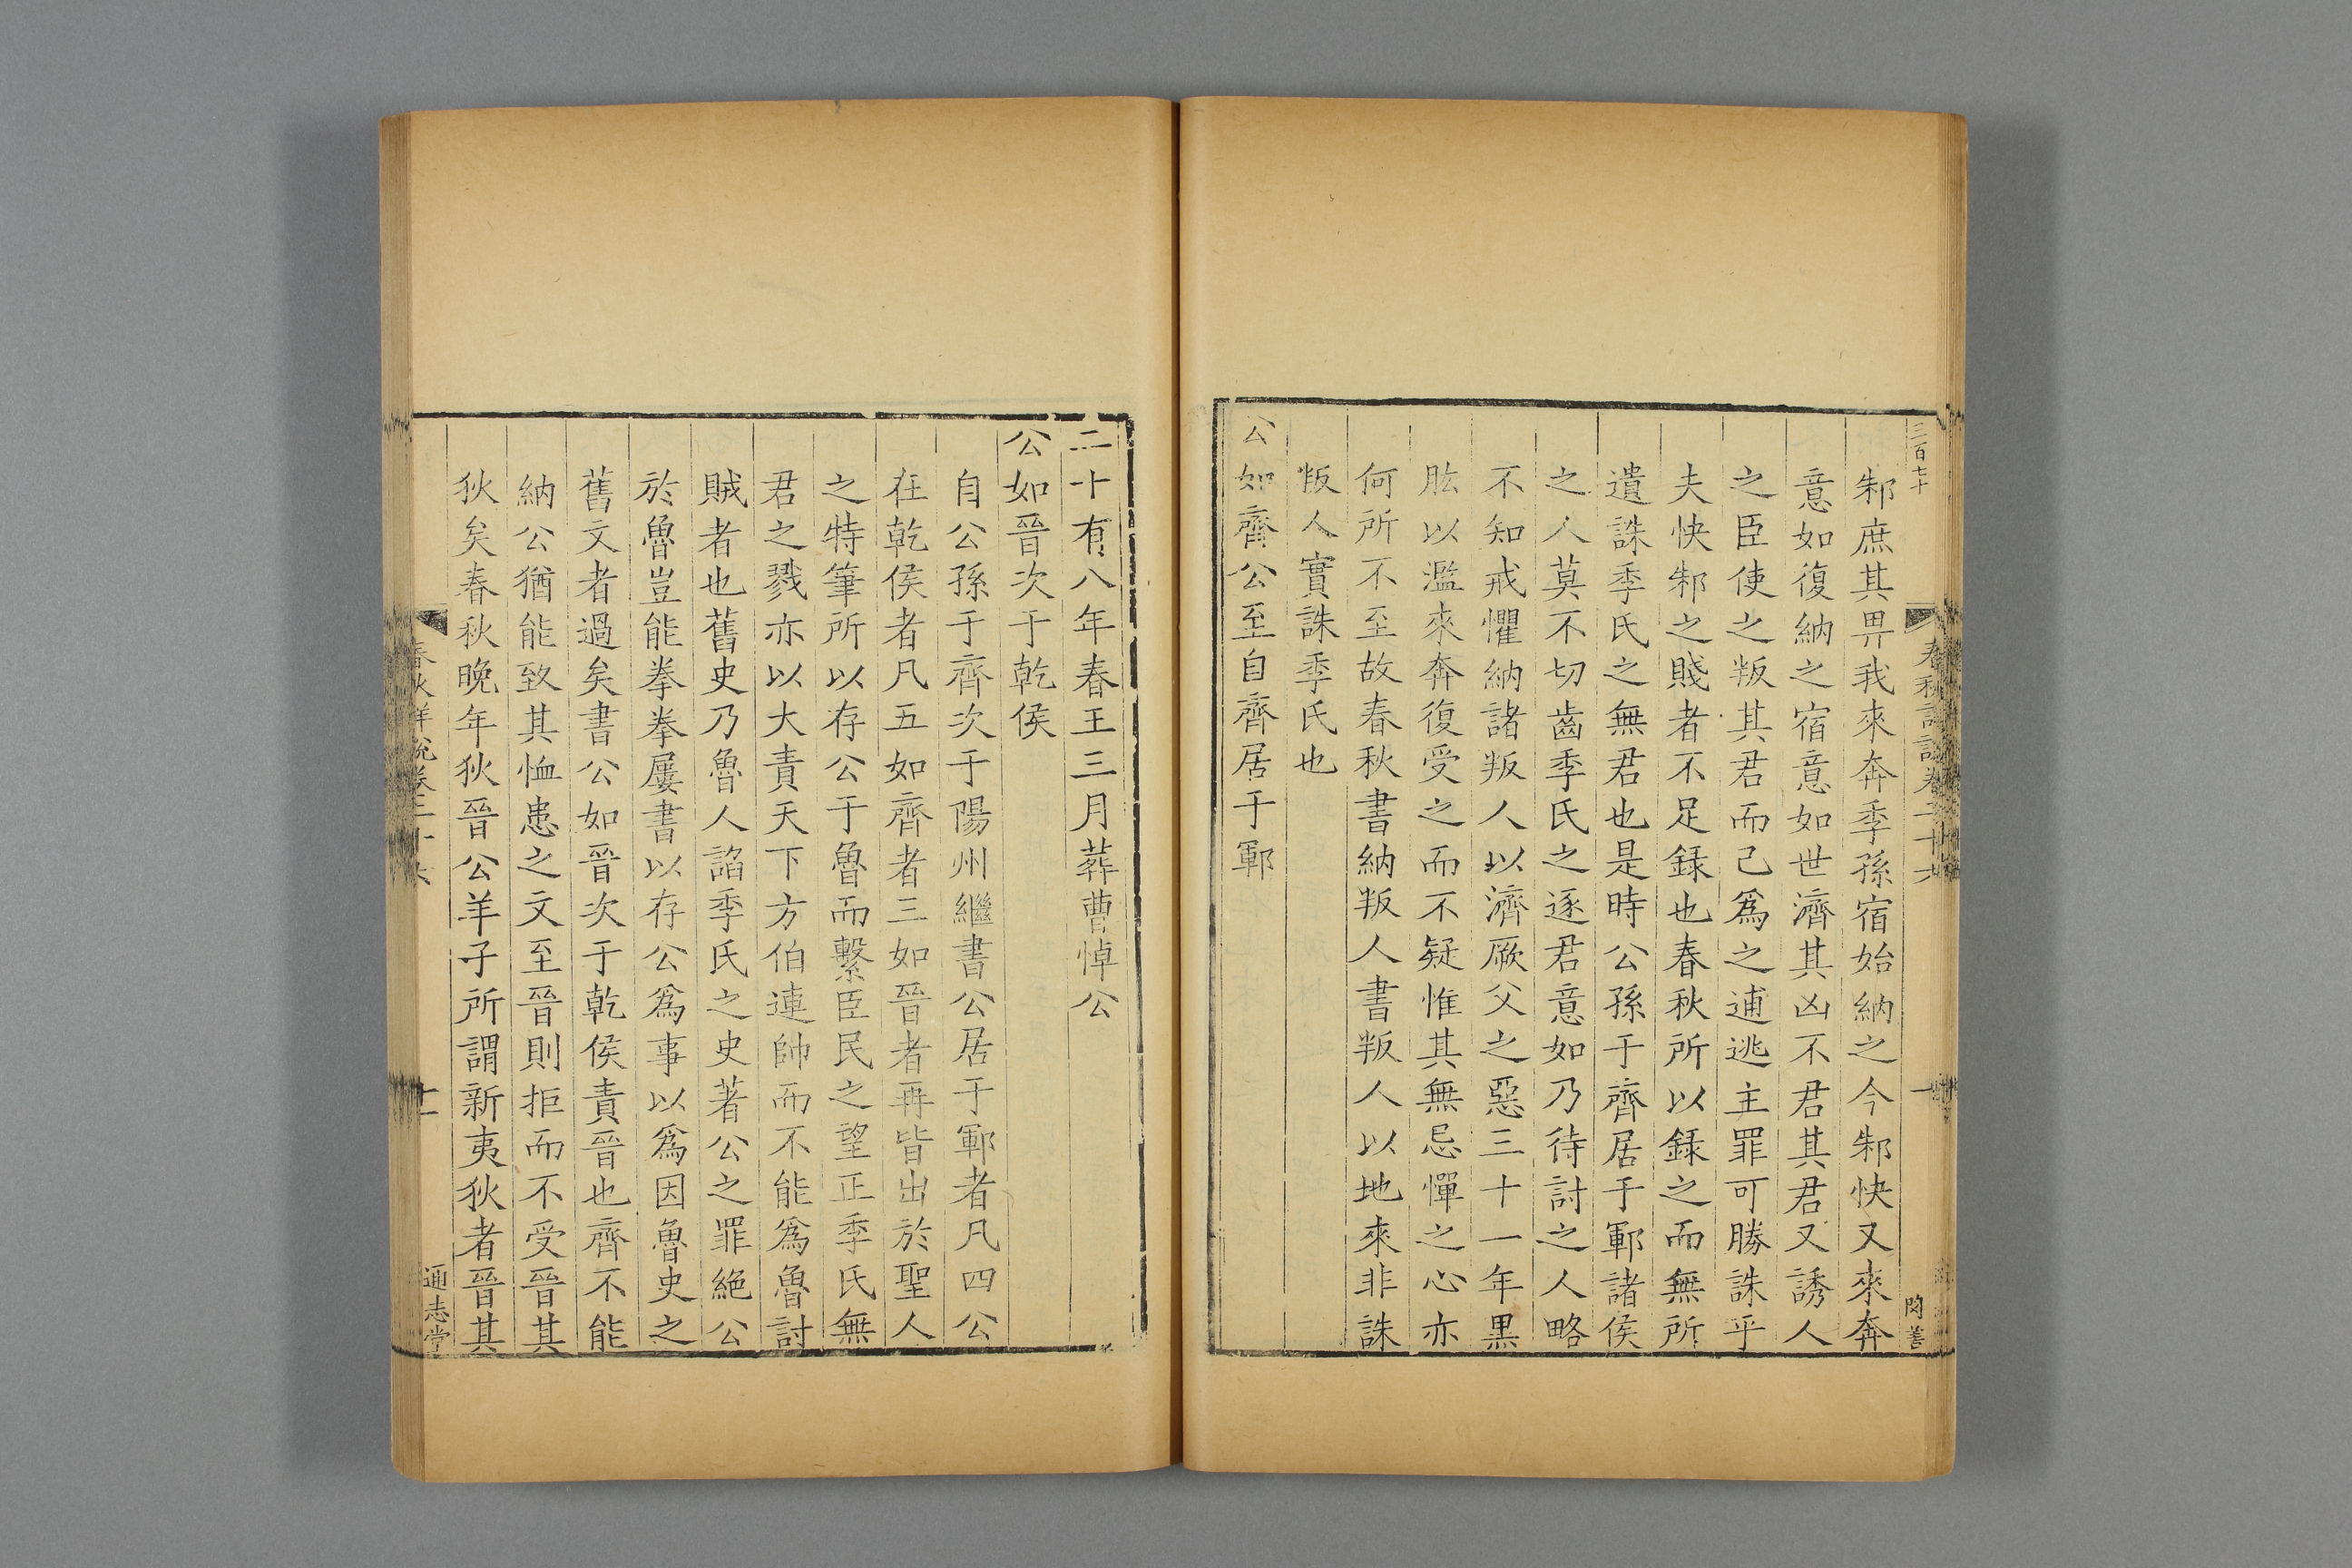 三百七十
邾庶其畀我來奔季孫宿始納之今邾快又來奔
意如復納之宿意如世濟其凶不君其君又誘人
之臣使之叛其君而己爲之逋逃主罪可勝誅乎
夫快邾之賤者不足録也春秋所以録之而無所
遺誅季氏之無君也是時公孫于齊居于鄆諸侯
之人莫不切齒季氏之逐君意如乃待討之人略
不知戒懼納諸叛人以濟厥父之惡三十一年黑
肱以濫來奔復受之而不疑惟其無忌憚之心亦
何所不至故春秋書納叛人書叛人以地來非誅
叛人實誅季氏也
公如齊公至自齊居于鄆
二十有八年春王三月葬曹悼公
公如晉次于乾侯
自公孫于齊次于陽州繼書公居于鄆者凡四公
在乾侯者凡五如齊者三如晉者再皆出於聖人
之特筆所以存公于魯而繫臣民之望正季氏無
君之戮亦以大責天下方伯連帥而不能爲魯討
賊者也舊史乃魯人諂季氏之史著公之罪絕公
於魯豈能拳拳屢書以存公爲事以爲因魯史之
舊文者過矣書公如晉次于乾侯責晉也齊不能
納公猶能致其恤患之文至晉則拒而不受晉其
狄矣春秋晚年狄晉公羊子所謂新夷狄者晉其
春秋詳說卷二十六
十一
通志堂